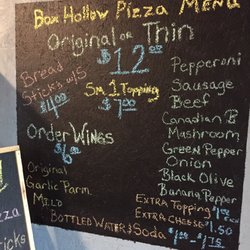 Box Hollow Pizza Menu
Original or Thin
$12.00
Bread
Sticks w/s
$4.00
Sm 1 Topping
$7.00
Order Wings
$6.00
Original
Garlic Parm
Mild
Pepperoni
Sausage
Beef
Canadian B
Mushroom
Green Pepper
Onion
Black Olive
Banana Pepper
Extra Topping
Extra Cheese 1.50
Bottled Water & Soda
izza
ticks